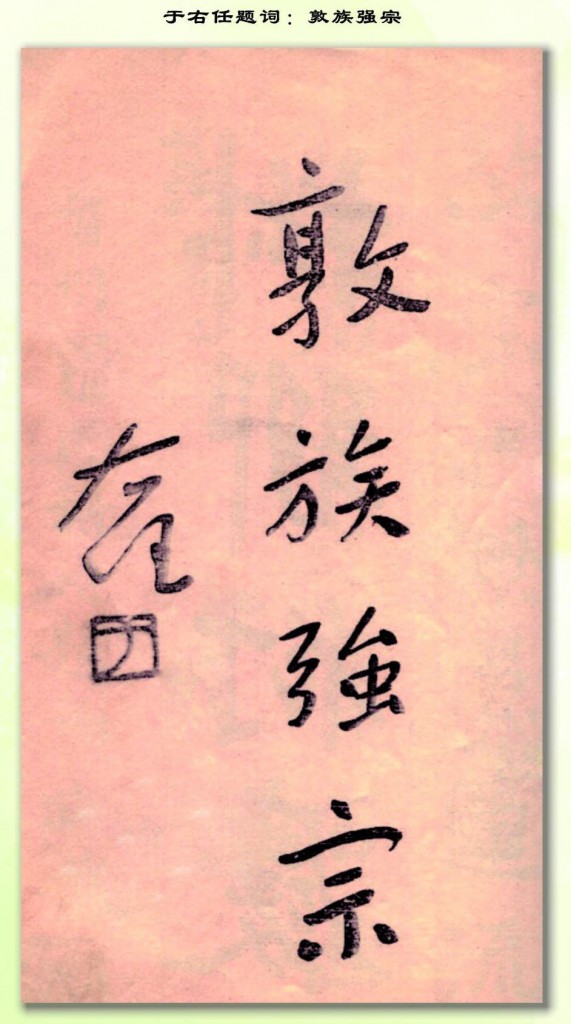 于右任题词：敦族强宗
敦族強宗
右任